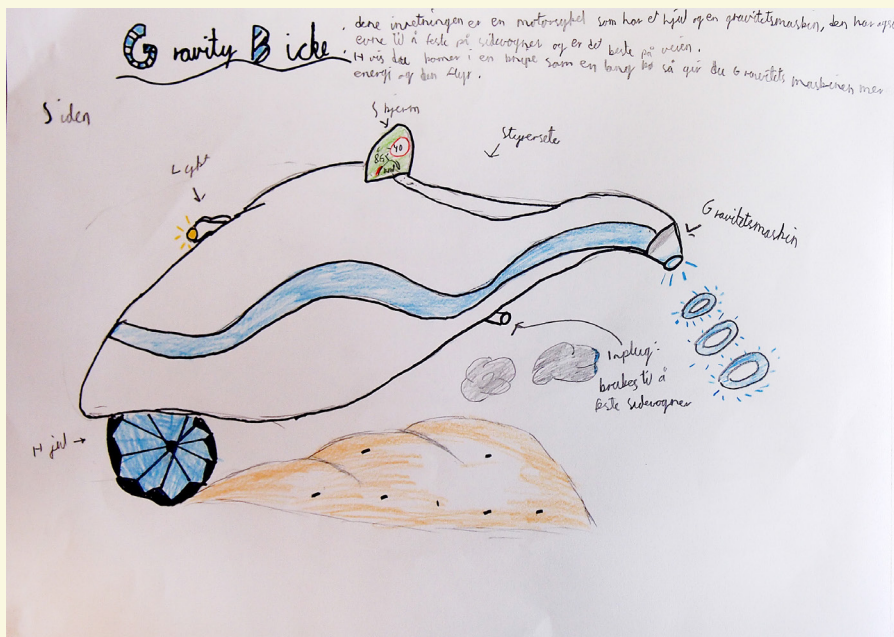 Gravity Bicke.
. dene inretningen er en motorsykel som har et hjul og en gravitetsmaskin, den har også
evne til å feste på sidevogner og er det beste på veien.
. Hvis du komer i en knipe som en lang kø så gir du Gravitets maskinen mer
energi og den flyr.
Siden
Skjerm
Styresete
Lykt
85
40
Gravitetsmaskin
Inplug:
brukes til å
feste sidevogner
Hjul